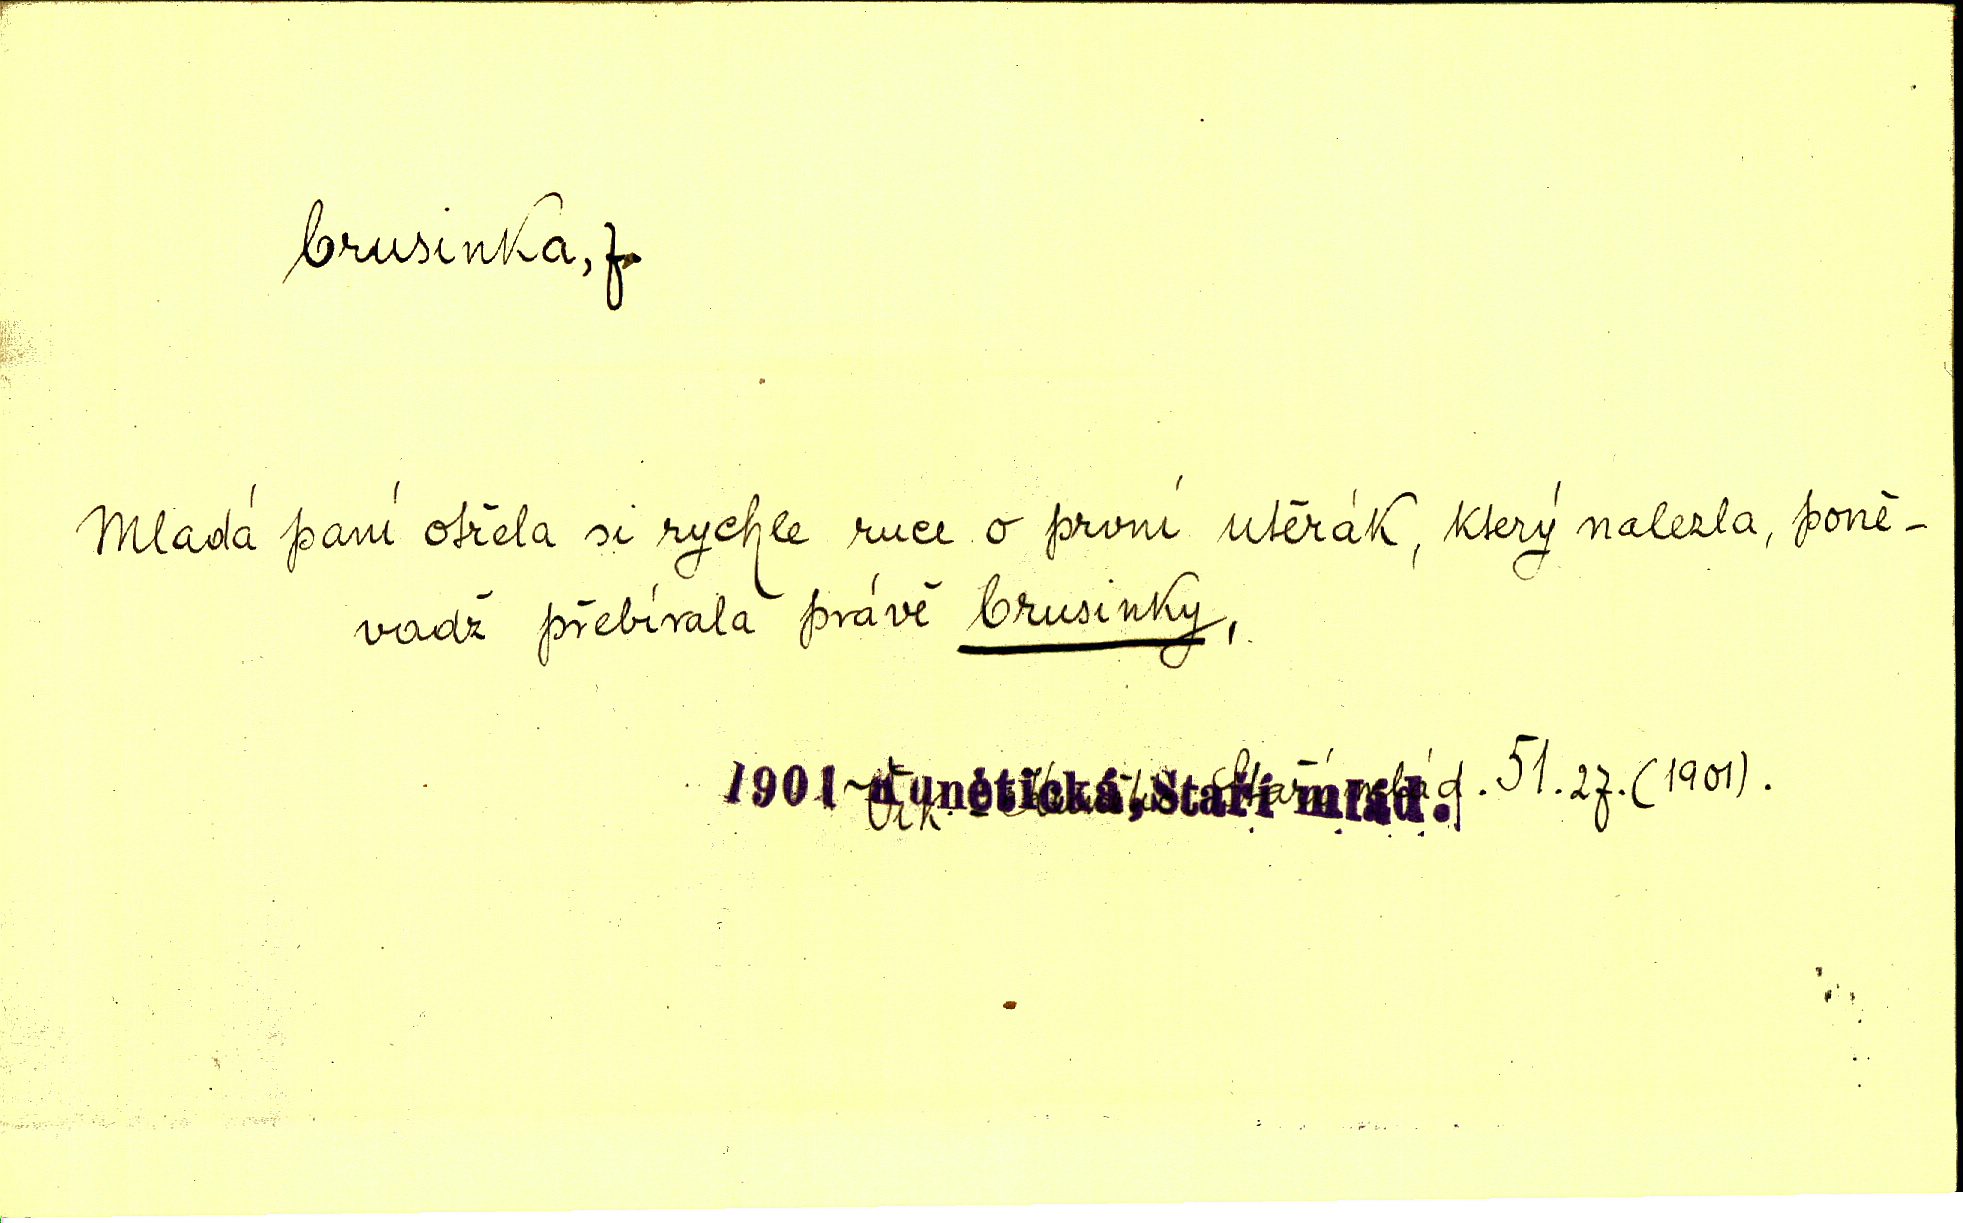 brusinka, f.
Mladá paní otřela si rychle ruce o první utěrák, který nalezla, poně-
vadž přebírala právě brusinky,
1901 Kunětická, Staří mlád. 51. 27. (1901).